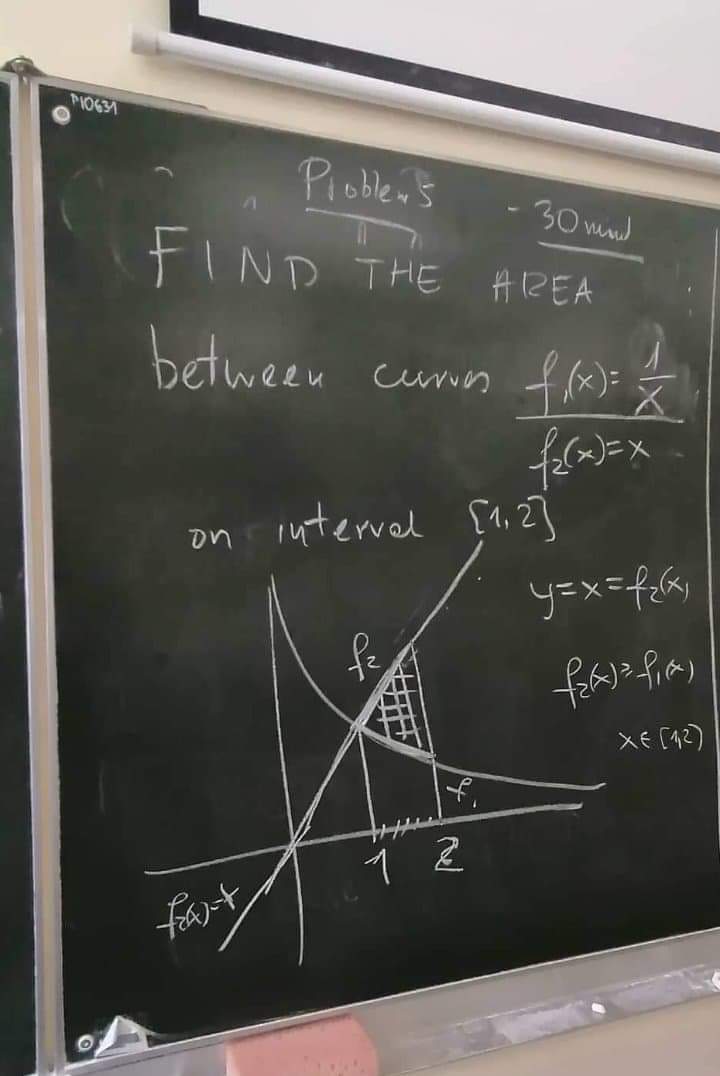 P10631
Problem 5
- 30 mind
FIND THE AREA
between curves f₁(x)= 1/x
f₂(x)=x
on interval [1,2]
y=x=f₂(x)
f₂(x)≥f₁(x)
x∈[1,2]
f₂
f₁
1 2
f₂(x)=x